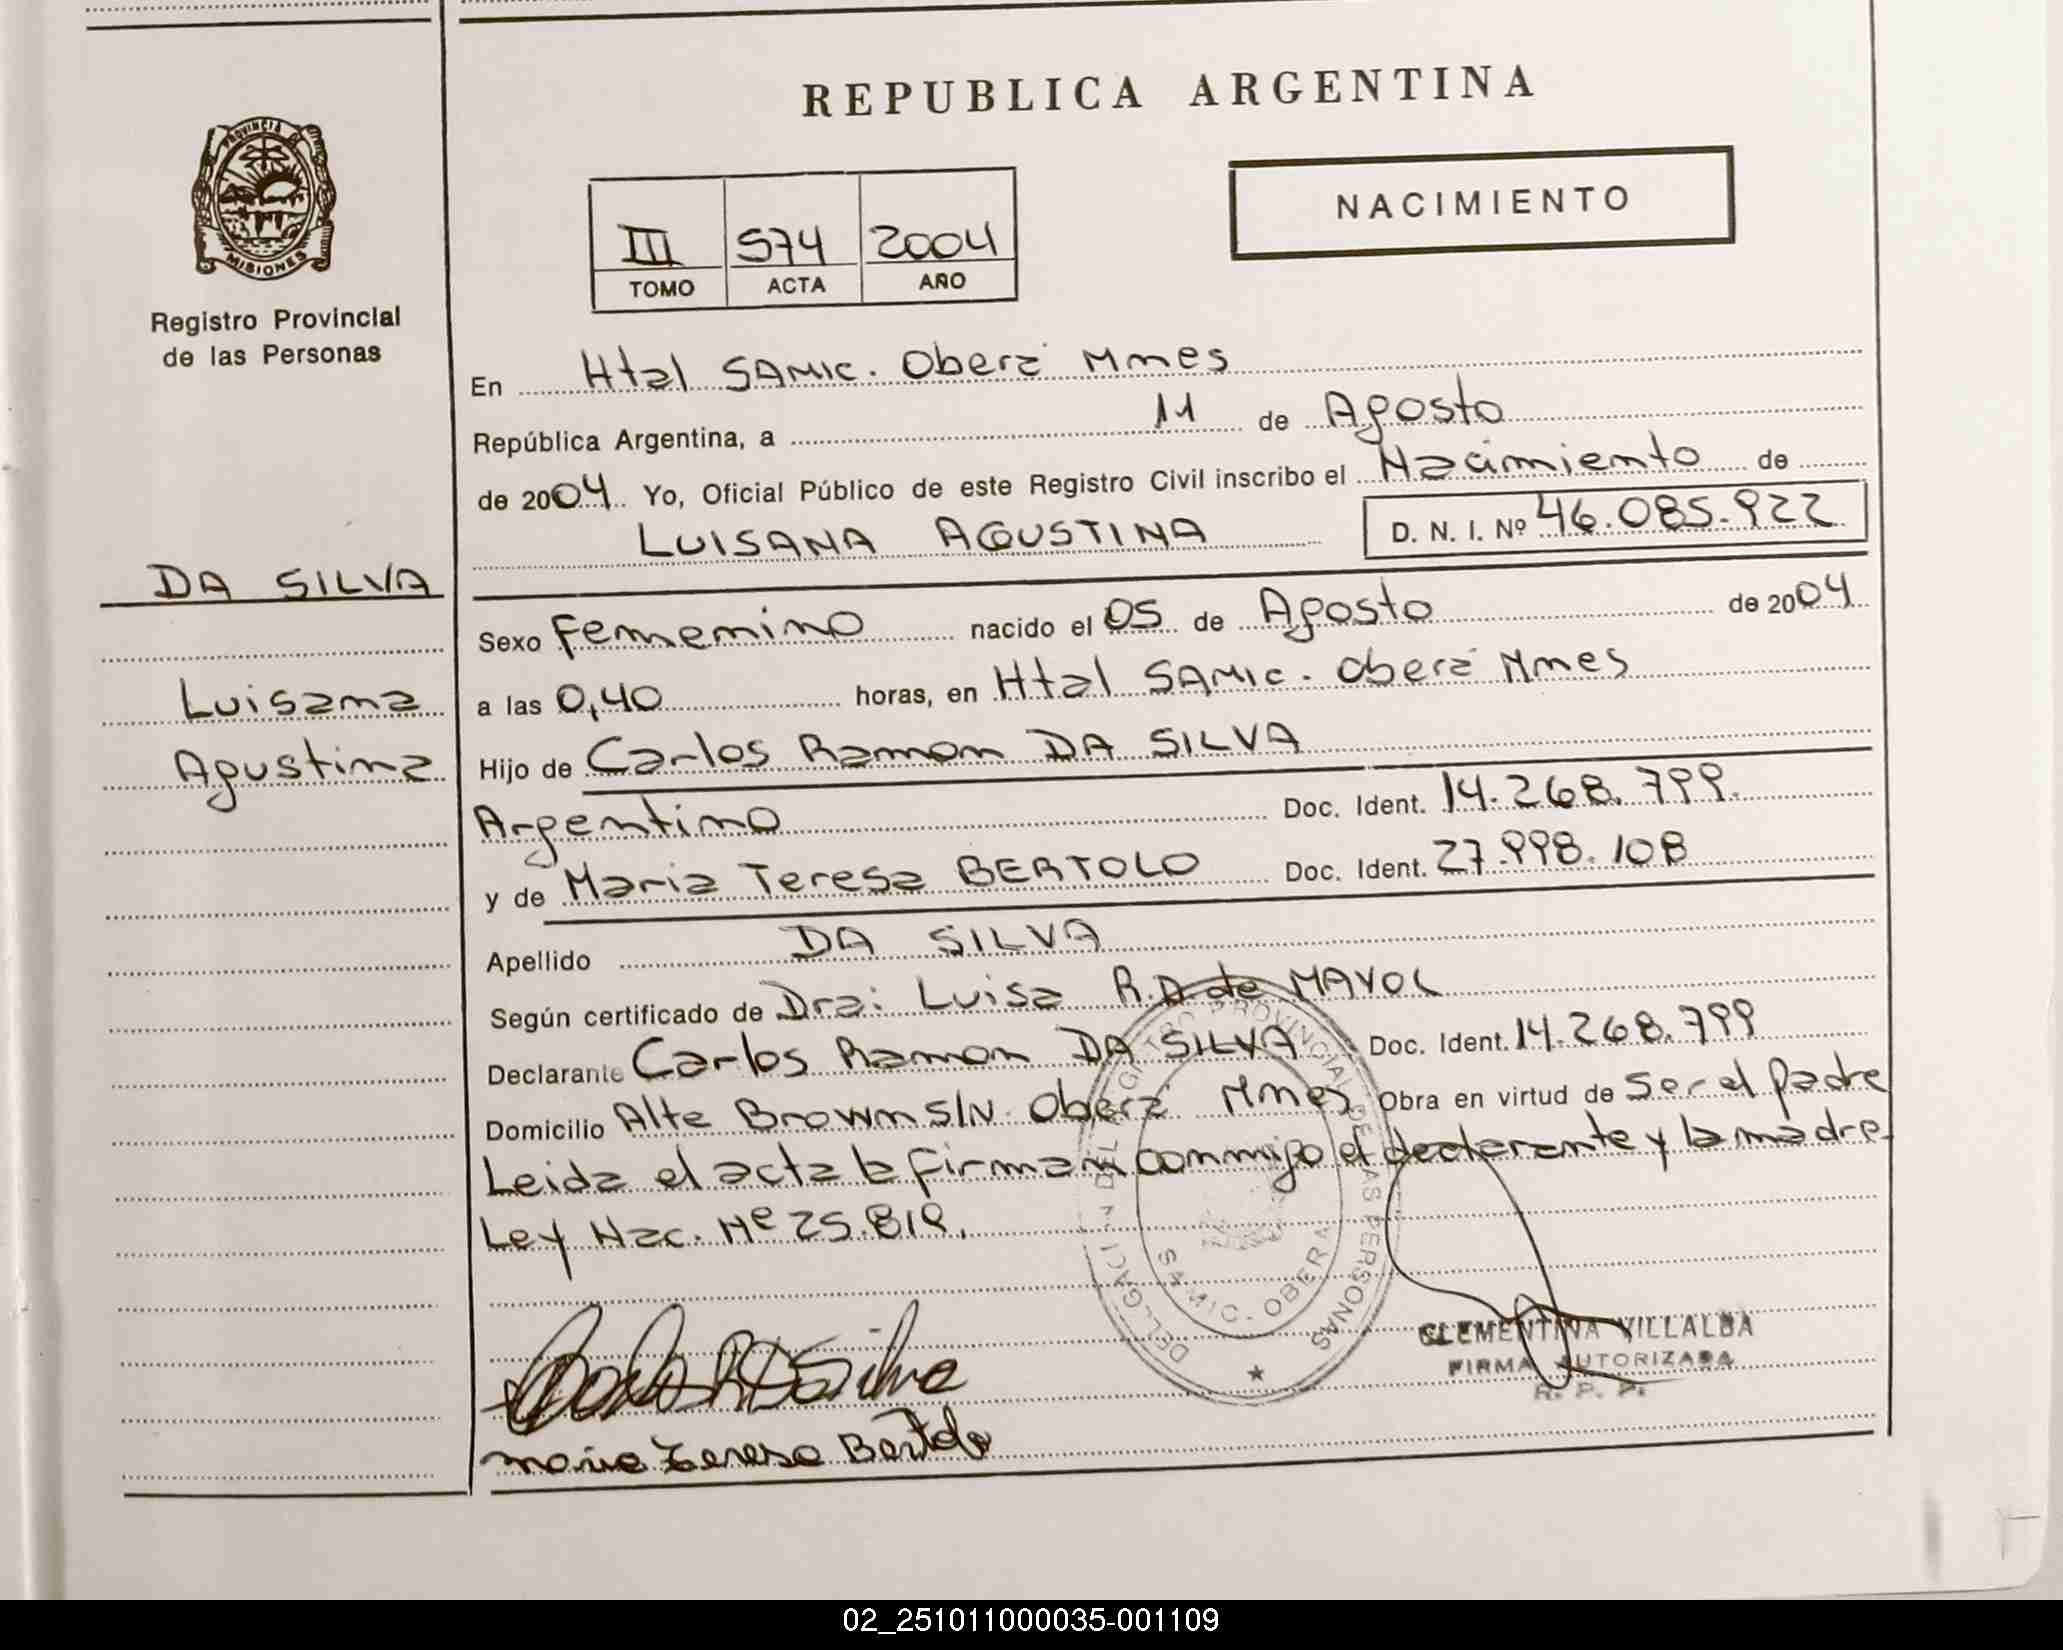 REPUBLICA ARGENTINA
PROVINCIA DE
MISIONES
Registro Provincial
de las Personas
NACIMIENTO
III 574 2004
TOMO ACTA AÑO
En Htal SAMIC. Oberá Mnes
República Argentina, a 11 de Agosto
de 2004 Yo, Oficial Público de este Registro Civil inscribo el Nacimiento de
LUISANA AGUSTINA D. N. I. Nº 46.085.922
DA SILVA
Luisana
Agustina
Sexo Femenino nacido el 05 de Agosto de 2004
a las 0,40 horas, en Htal SAMIC. Oberá Mnes
Hijo de Carlos Ramon DA SILVA
Argentino Doc. Ident. 14.268.799.
y de Maria Teresa BERTOLO Doc. Ident. 27.998.108
Apellido DA SILVA
Según certificado de Dra: Luisa R.D. de MAYOL
Declarante Carlos Ramon DA SILVA Doc. Ident. 14.268.799
Domicilio Alte Brown S/N. Oberá Mnes Obra en virtud de Ser el Padre
Leida el acta la firman conmigo el declarante y la madre.
Ley Nac. Nº 25.819.
REGISTRO PROVINCIAL DE LAS PERSONAS
SAMIC - OBERA
CLEMENTINA VILLALBA
FIRMA AUTORIZADA
R. P. P.
Maria Teresa Bertolo
02_251011000035-001109